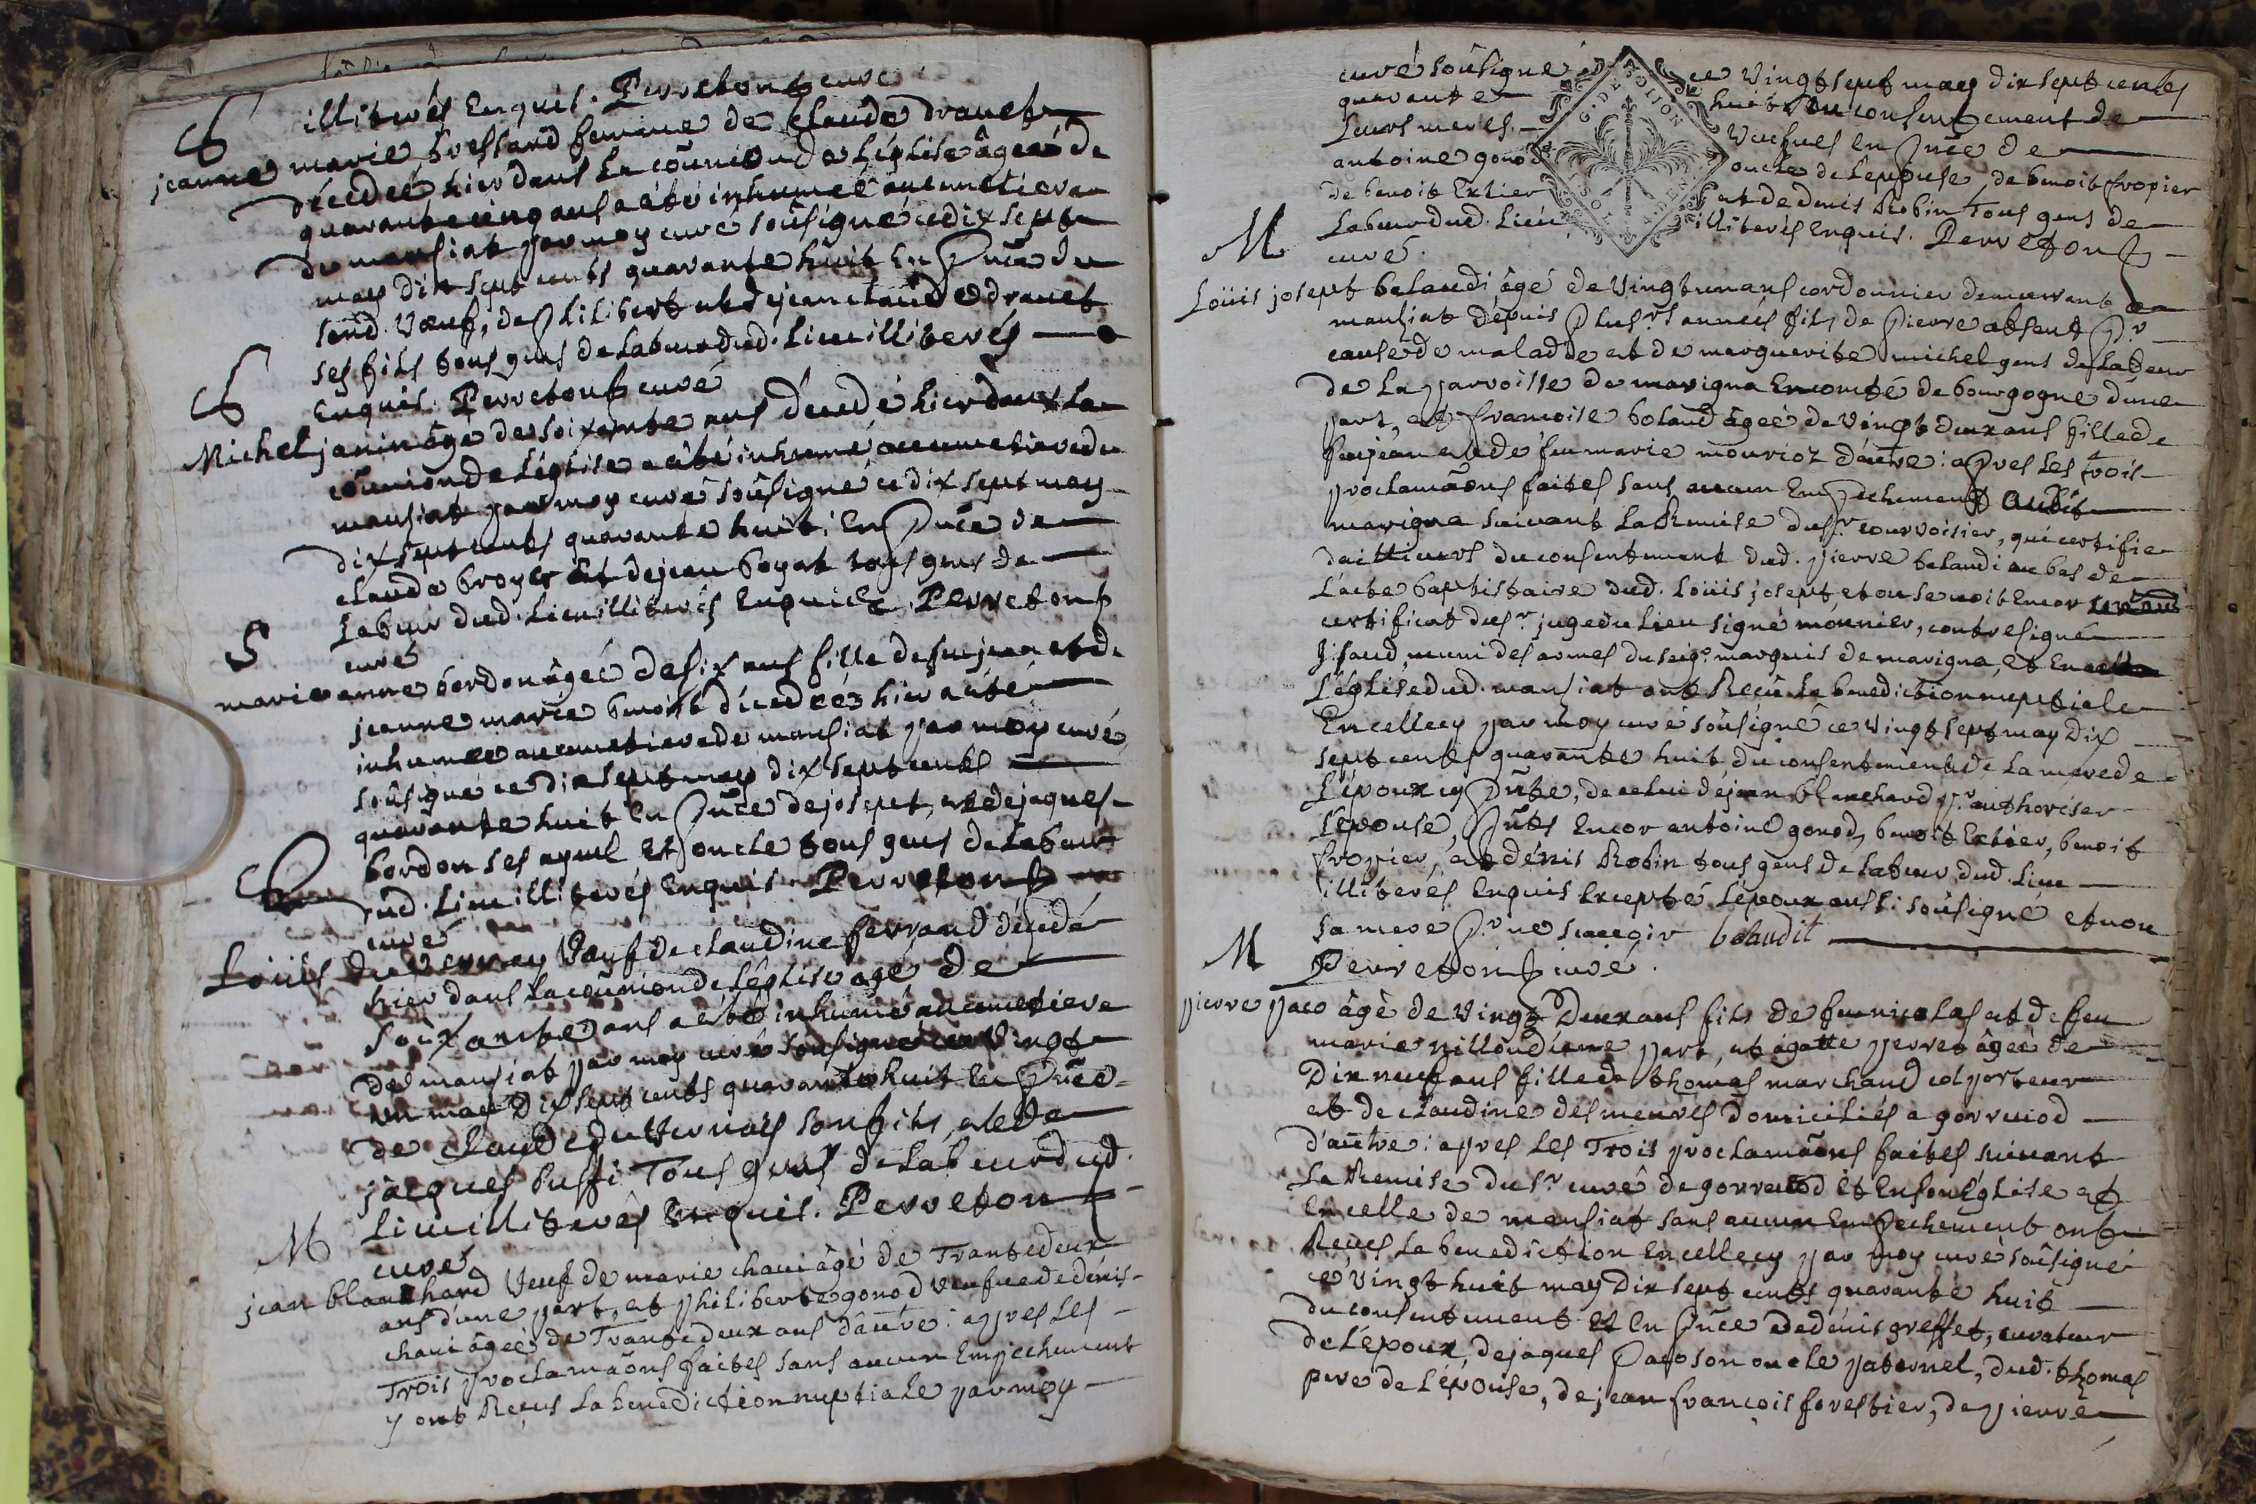 illiterés Enquis. Perreton curé
S
jeanne marie bressand femme de claude dravet
décédée hier dans la coûnion de l'église âgée de
quarante cinq ans a été inhumée au cimetiere
de mansiat par moy curé soûsigné ce dix sept
may dix sept cents quarante huit En pñce du
send. Vœuf, de philibert et de jean claude dravet
ses fils tous gens de labeur dud. lieu illiterés
Enquis. Perreton curé
S
Michel janin âgé de soixante ans décedé hier dans la
coûnion de l'église a été inhumé au cimetiere de
mansiat par moy curé soûsigné ce dix sept may
dix sept cents quarante huit: En pñce de
claude broyer Et de jean boyat tous gens de
labeur dud. lieu illiterés Enquis. Perreton
curé
S
marie anne bordon âgée de six ans fille de feu jean et de
jeanne marie benoit décédée hier a été
inhumée au cimetiere de mansiat par moy curé
soûsigné ce dix sept may dix sept cents
quarante huit En pñce de josept, et de jaques
bordon ses ayeul Et oncle tous gens de labeur
dud. lieu illiterés Enquis. Perreton
curé
S
Loüis du Vernay Vœuf de claudine ferrand décédé
hier dans la coûnion de l'église âgé de
soixante ans a été inhumé au cimetiere
de mansiat par moy curé soûsigné ce Vingt
un may Dix sept cents quarante huit En pñce
de claude du Vernay son fils, et de
jacques buffi Tous gens de labeur dud.
lieu illiterés Enquis. Perreton
curé
M
jean blanchard Veuf de marie chavi âgé de Trante deux
ans d'une part, et philiberte gonod Veufue de dénis
chavi âgée de Trante deux ans d'aûtre: apres les
Trois proclamãons faites sans aucun Empechement
y ont Reçus la benediction nuptiale par moy
curé soûsigné ce Vingt sept may dix sept cents
quarante huit Du consentement de
leurs meres Veufues En pñce de
antoine gonod oncle de l'epouse, de benoit fropier
de benoit Extier et de denis Robin Tous gens de
labeur dud. lieu illiterés Enquis. Perreton
curé.
G. DE DIJON
SOL
DEN
M
Loüis josept belaudi âgé de Vingt un ans cordonnier demeurant a
mansiat dépuis plusrs années fils de pierre absent pr
cause de maladie et de marguerite michel gens de labeur
de la parroisse de marigna En comté de bourgogne d'une
part, et francoise boland âgée de Vingt deux ans fille de
feu jean et de feu marie mourioz d'aûtre: apres les trois
proclamãons faites sans aucun Empechement audit
marigna suivant la Remise du sr courvoisier, qui certifie
dailleurs du consentement dud. pierre belaudi au bas de
l'acte baptistaire dud. Loüis josept et on se voit Encor
certificat du sr juge du lieu signé mounier, contresigné
jsaud, muni des armes du seigr marquis de marigna, et En
l'église dud. mansiat ont Reçû la benediction nuptiale
En cellecy par moy curé soûsigné ce Vingt sept may Dix
sept cents quarante huit du consentement de la mere de
l'époux cy pñte, de celui de jean blanchard pr authoriser
l'epouse, pñts Encor antoine gonod, benoit Extier, benoit
fropier, et dénis Robin tous gens de labeur dud. lieu
illiterés Enquis Excepté l'époux aussi soûsigné et non
sa mere pr ne scavoir belaudit
Perreton curé.
M
pierre paco âgé de Vingt Deux ans fils de feu nicolas et de feu
marie nilloud d'une part, et agatte perret âgée de
Dix neuf ans fille de thomas marchand colporteur
et de claudine desmeures domiciliés a gorrevod
d'aûtre: apres les Trois proclamãons faites suivant
la Remise du sr curé de gorrevod Et En son Eglise et
En celle de mansiat sans aucun Empechement ont
Reçus la benediction En cellecy par moy curé soûsigné
ce Vingt huit may Dix sept cents quarante huit
du consentement Et En pñce de dénis greffet, curateur
de l'époux, de jaques paco son oncle paternel, dud. thomas
pere de l'épouse, de jean françois forestier, de pierre